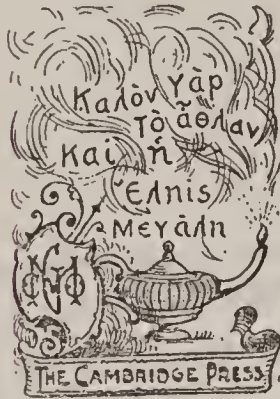 Καλὸν γὰρ
τὸ ἆθλαν
Καὶ ἡ
Ἐλπὶς
ΜΕΓάλη
THE CAMBRIDGE PRESS